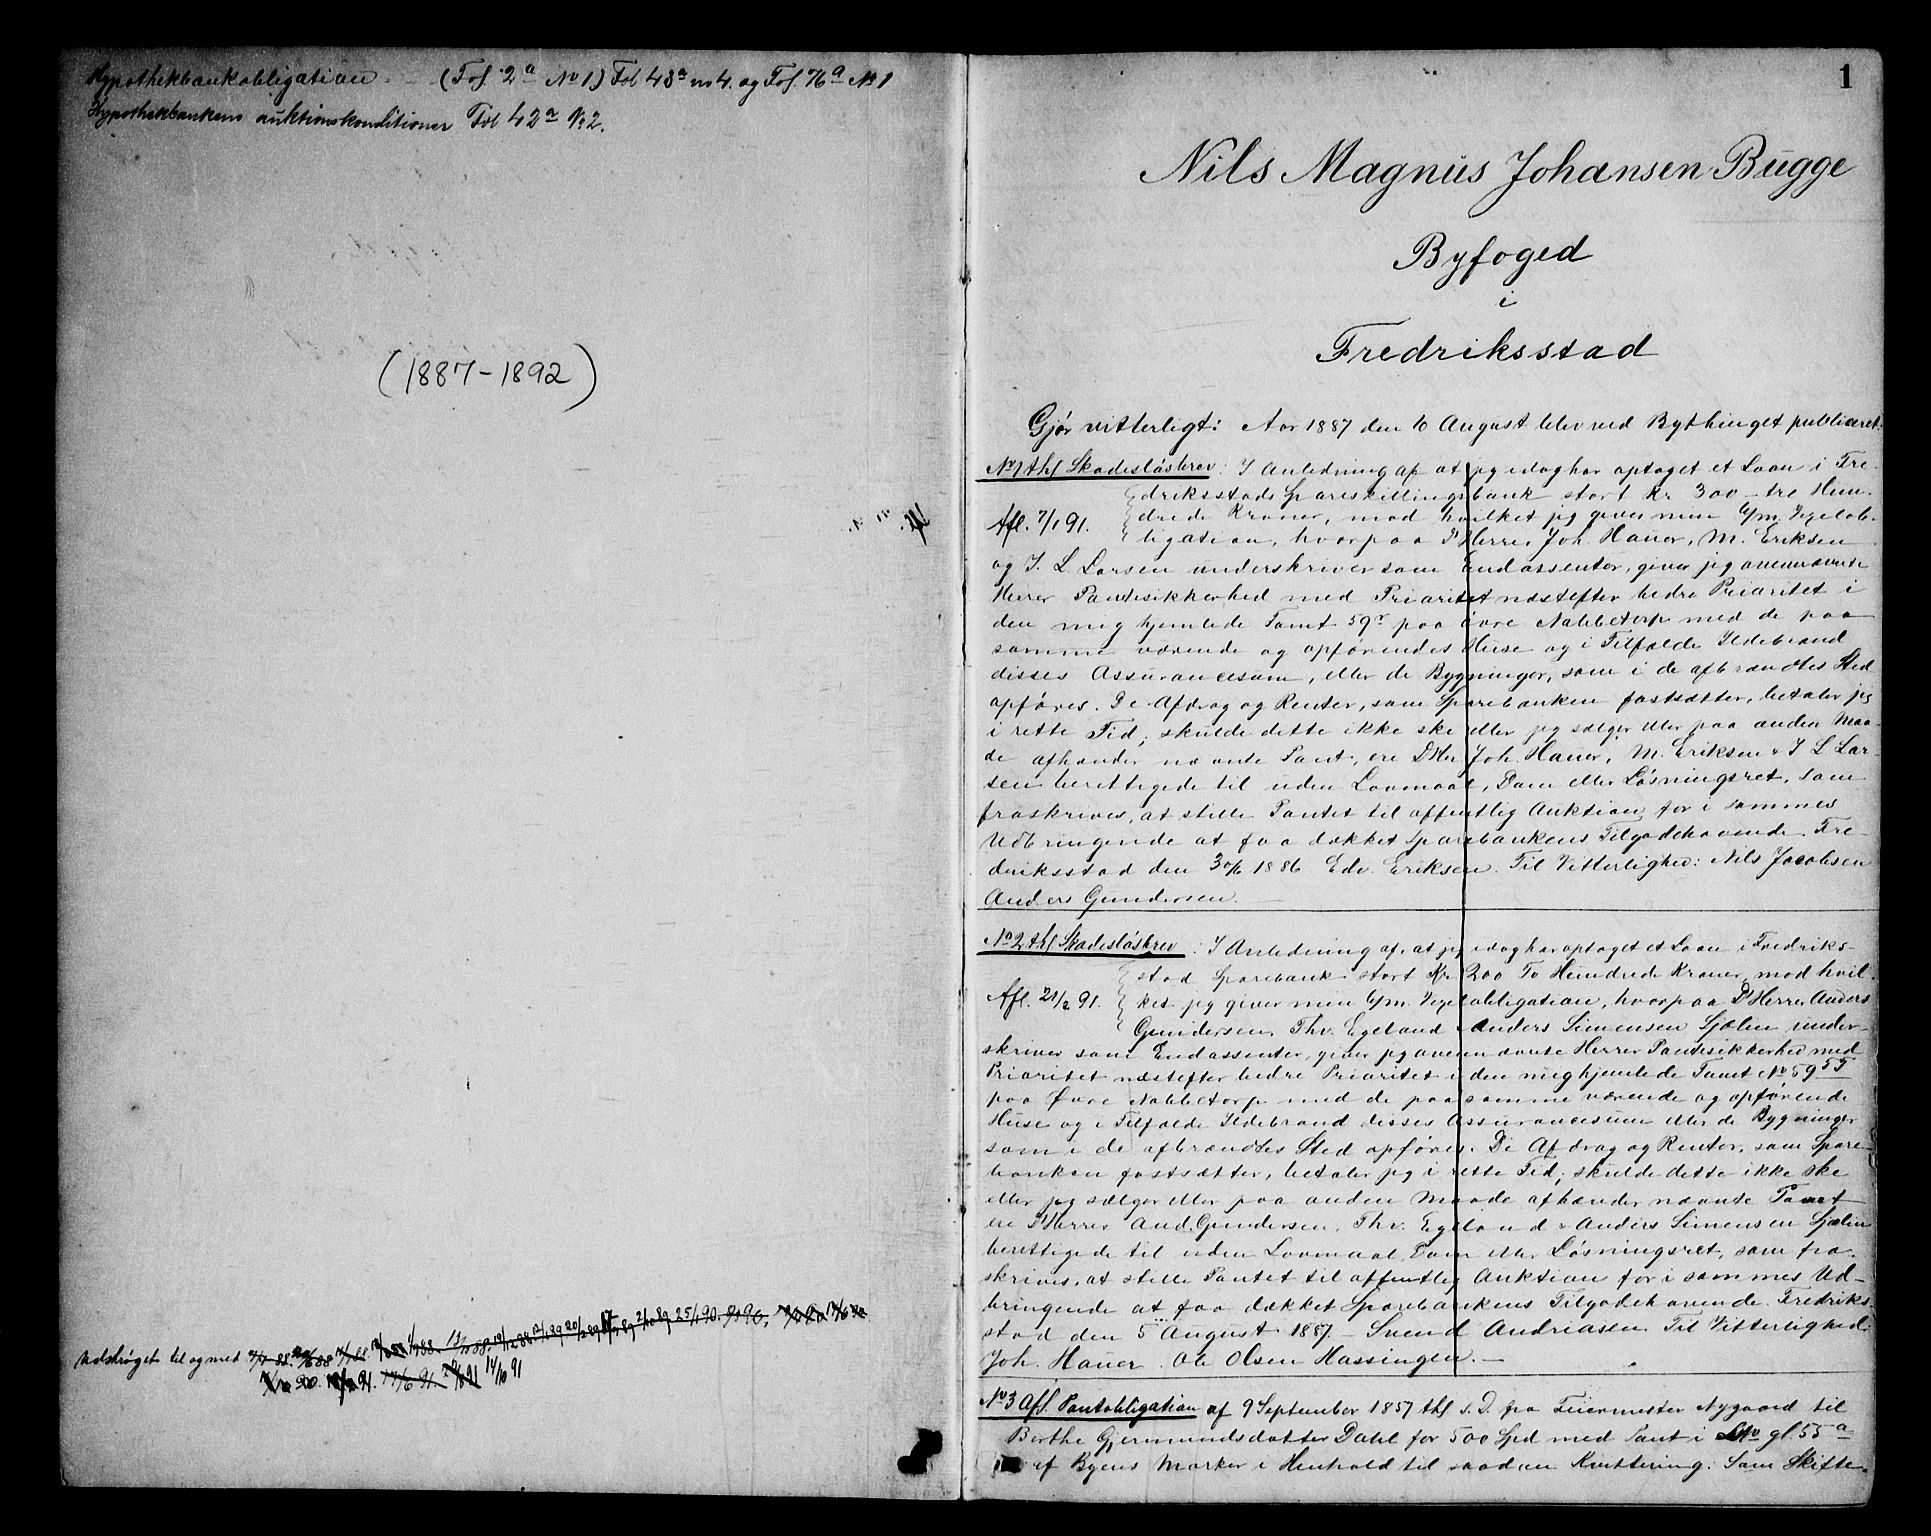 Hypothekbankobligation (Fol. 2a No 1) Fol 48a no 4. og Fol. 76a No 1
Hypothekbankens auktionskonditioner Fol 42a No 2.
(1887-1892)
Udstrøget til og med
14/10 91
1
Nils Magnus Johansen Bugge
Byfoged
i
Fredriksstad
Gjør vitterligt: Aar 1887 den 10 August blev ved Bythinget publiceret:
No 1 thl Skadesløsbrev: I Anledning af at jeg idag har optaget et Laan i Fre-
driksstads Spareskillingsbank stort Kr 300 - tre Hun-
Afl. 7/1 91. drede Kroner, mod hvilket jeg giver min 6/m. Vexelob-
ligation, hvorpaa D'Herrer Joh. Hauer, M. Eriksen
og I. L. Larsen underskriver som Endossenter, giver jeg ovennævnte
Herrer Pantesikkerhed med Prioritet næstefter bedre Prioritet i
den mig hjemlede Tomt 59r paa øvre Nabbetorp med de paa
samme værende og opførendes Huse og i Tilfælde Ildebrand
disses Assurancesum, eller de Bygninger, som i de afbrændtes Sted
opføres. De Afdrag og Renter, som Sparebanken fastsætter, betaler jeg
i rette Tid; skulde dette ikke ske eller jeg sælger eller paa anden Maa-
de afhænder nævnte Pant, ere D'Hrr Joh. Hauer, M. Eriksen & I L Lar-
sen berettigede til uden Lovmaal, Dom eller Løsningsret, som
fraskrives, at stille Pantet til offentlig Auktion for i sammes
Udbringende at faa dækket Sparebankens Tilgodehavende. Fre-
driksstad den 30/6 1886 Edv. Eriksen. Til Vitterlighed: Nils Jacobsen
Anders Gundersen.
No 2 thl Skadesløsbrev: I Anledning af, at jeg idag har optaget et Laan i Fredriks-
stad Sparebank stort Kr 200 To Hundrede Kroner, mod hvil-
Afl. 21/2 91. ket jeg giver min 6/m. Vexelobligation, hvorpaa D'Herrer Anders
Gundersen, Thv. Egeland & Anders Simensen Sjølin under-
skriver som Endossenter, giver jeg ovennævnte Herrer Pantesikkerhed med
Prioritet næstefter bedre Prioritet i den mig hjemlede Tomt No 59
paa Øvre Nabbetorp med de paa samme værende og opførende
Huse og i Tilfælde Ildebrand disses Assurancesum eller de Bygninger
som i de afbrændtes Sted opføres. De Afdrag og Renter, som Spare-
banken fastsætter, betaler jeg i rette Tid; skulde dette ikke ske
eller jeg sælger eller paa anden Maade afhænder nævnte Pant
ere D'Herrer And. Gundersen, Thv. Egeland & Anders Simensen Sjølin
berettigede til uden Lovmaal, Dom eller Løsningsret, som fra-
skrives, at stille Pantet til offentlig Auktion for i sammes Ud-
bringende at faa dækket Sparebankens Tilgodehavende. Fredriks-
stad den 5 August 1887. - Svend Andriasen. Til Vitterlighed:
Joh. Hauer. Ole Olsen Hassingen. -
No 3 Afl. Pantobligation af 9 September 1857 thl s. D. fra Feiermester Nygaard til
Berthe Gjermundsdatter Dahl for 500 Spd med Pant i No gl. 55a
af Byens Marker i Henhold til saadan Kvittering: Som Skifte-